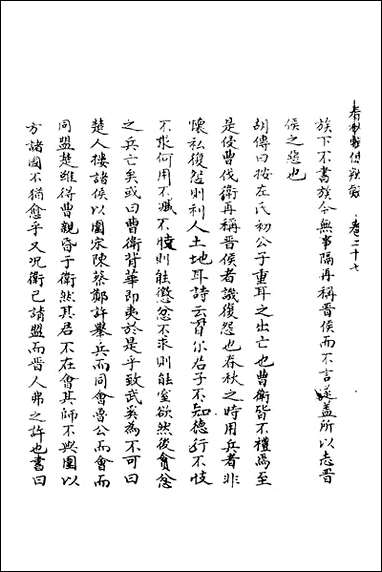 春秋輯傳辨疑 卷二十七
族下不書族今無事隔再稱晉侯而不言遂蓋所以志晉
侯之惡也
胡傳曰按左氏初公子重耳之出亡也曹衛皆不禮焉至
是侵曹伐衛再稱晉侯者譏復怨也春秋之時用兵者非
懷私復怨則利人土地耳詩云百尔君子不知德行不忮
不求何用不臧不忮則能懲忿不求則能窒欲然後貪忿
之兵亡矣或曰曹衛背華即夷於是乎致武奚為不可曰
楚人摟諸侯以圍宋陳蔡鄭許舉兵而同會魯公而會而
同盟楚雖得曹親昏于衛然其君不在會其師不與圍以
方諸國不猶愈乎又况衛已請盟而晉人弗之許也書曰